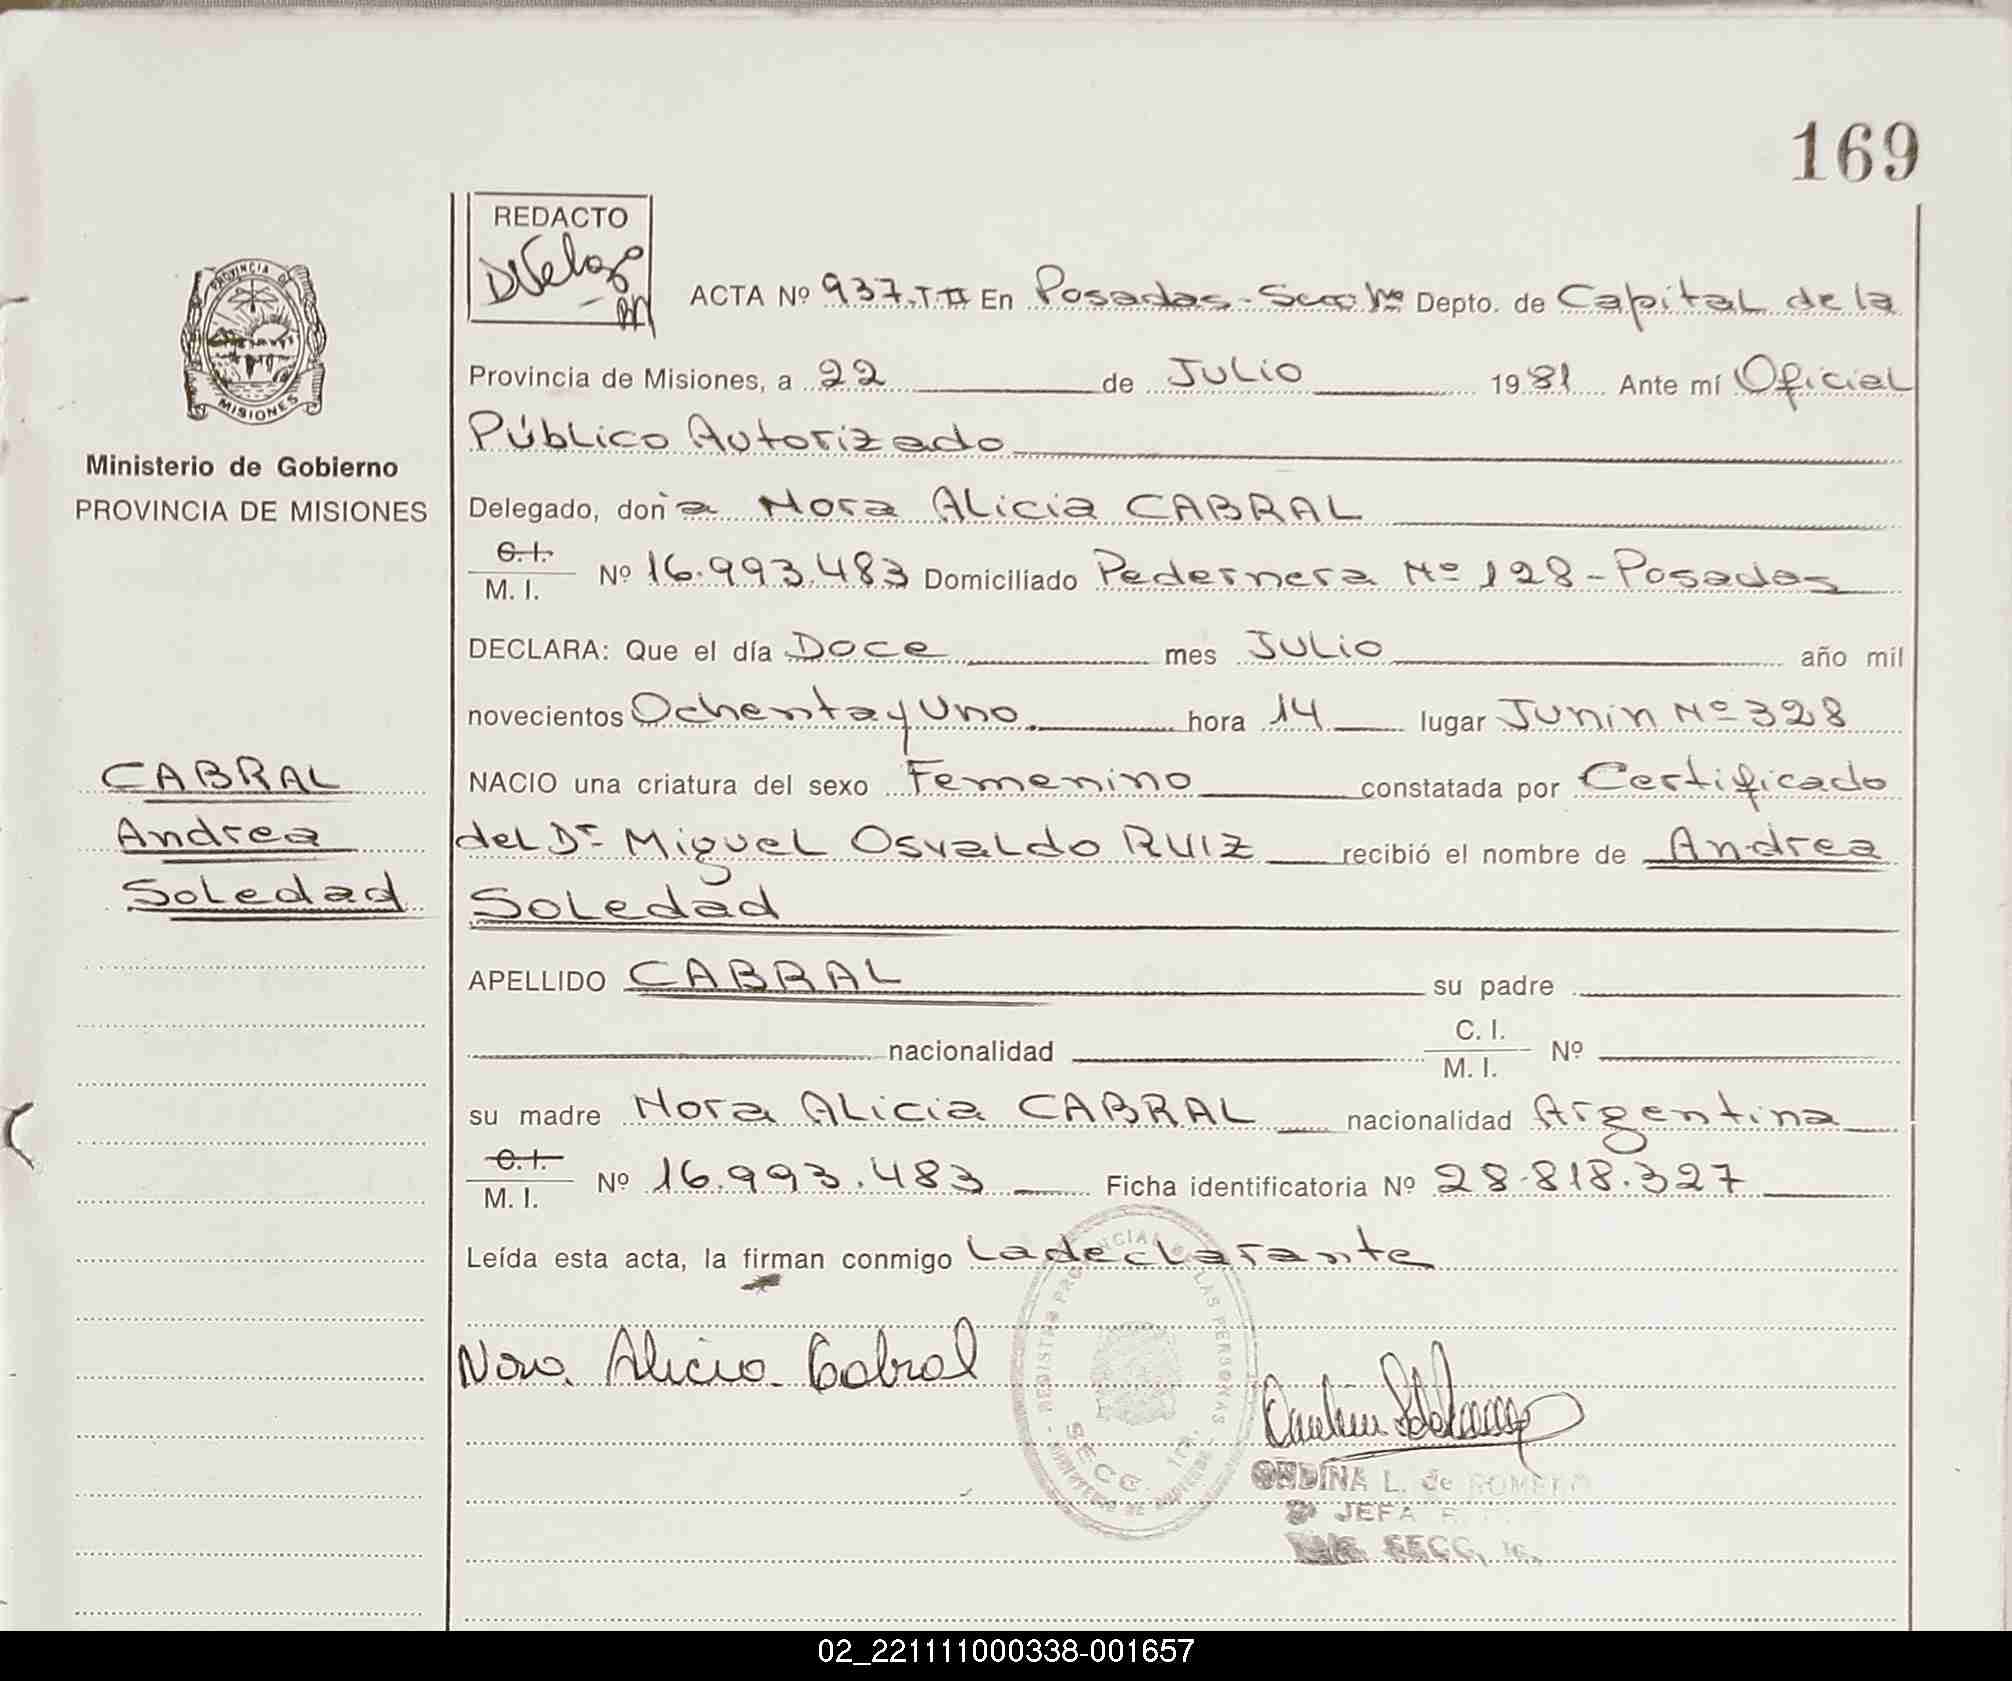 169
REDACTO
PROVINCIA DE
MISIONES
Ministerio de Gobierno
PROVINCIA DE MISIONES
ACTA Nº 937.T.II En Posadas-Secc 1ra Depto. de Capital de la
Provincia de Misiones, a 22 de Julio 1981 Ante mí Oficial
Público Autorizado
Delegado, doña Nora Alicia CABRAL
C.I.
M. I. Nº 16.993.483 Domiciliado Pedernera Nº 128-Posadas
DECLARA: Que el día Doce mes Julio año mil
novecientos Ochenta y Uno hora 14 lugar Junin Nº 328
CABRAL
Andrea
Soledad
NACIO una criatura del sexo Femenino constatada por Certificado
del Dr Miguel Osvaldo RUIZ recibió el nombre de Andrea
Soledad
APELLIDO CABRAL su padre
nacionalidad C. I. Nº
M. I.
su madre Nora Alicia CABRAL nacionalidad Argentina
C.I.
M. I. Nº 16.993.483 Ficha identificatoria Nº 28.818.327
Leída esta acta, la firman conmigo La declarante
Nora Alicia Cabral
REGISTRO PROVINCIAL DE LAS PERSONAS
SECC. 1ra.
MINISTERIO DE GOBIERNO
ONDINA L. de ROMERO
JEFA
SECC. 1a.
02_221111000338-001657